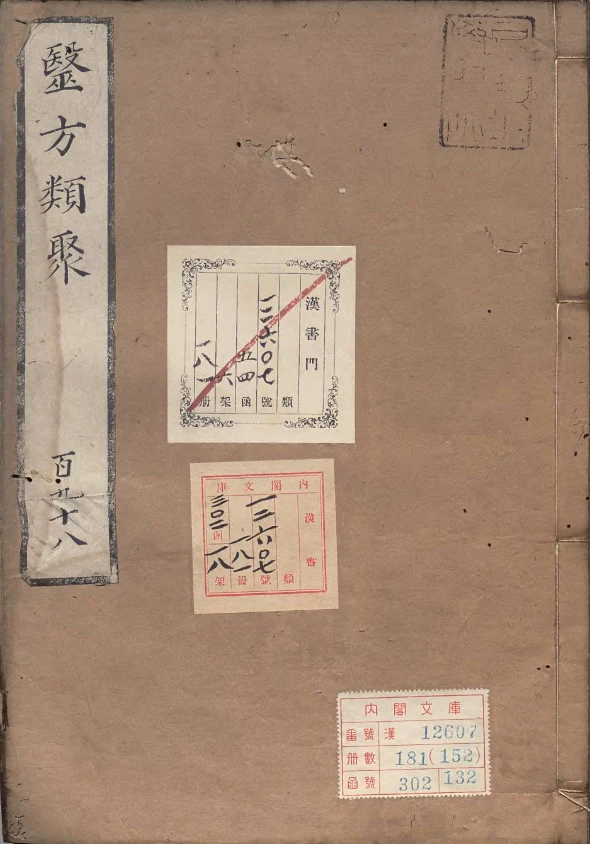 醫方類聚
百九十八
漢書門
一二六〇七
五四
六
一八一
類
號
函
架
册
内閣文庫
漢書
一二六〇七
一八一
三〇二
一八
類
號
冊
函
架
内閣文庫
番號 漢 12607
册數 181(152)
函號 302 132